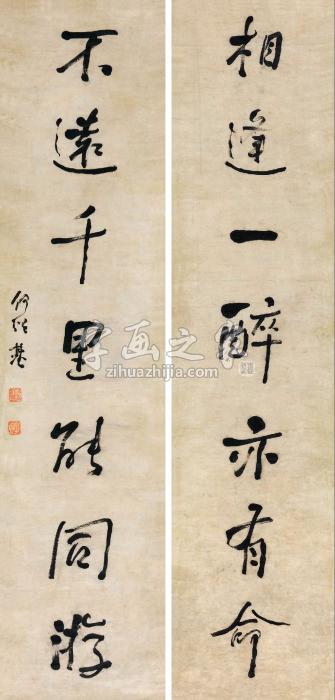 相逢一醉亦有命
不远千里能同游
何绍基
字画之家
zihuazhijia.com